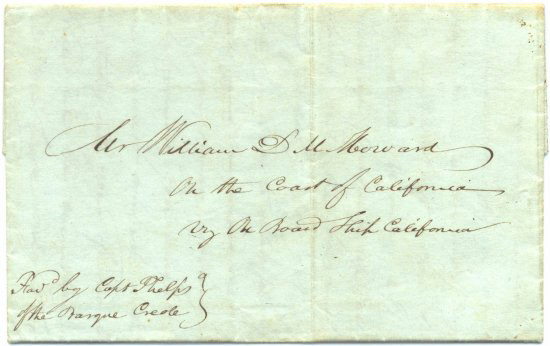 Mr William D M Howard
On the Coast of California
on Board Ship California
Fav.d by Capt Phelps
of the Barque Creole